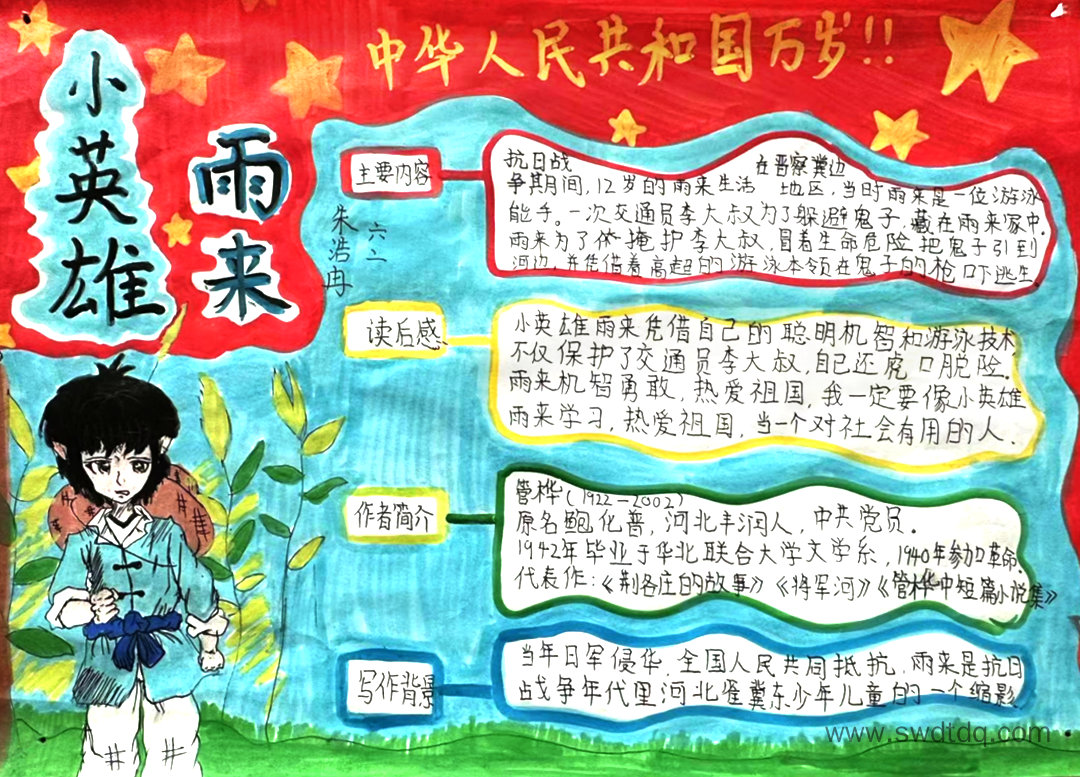 中华人民共和国万岁!!
小英雄
雨来
朱浩冉
六二
主要内容
抗日战 在晋察冀边
争期间,12岁的雨来生活 地区,当时雨来是一位游泳
能手。一次交通员李大叔为了躲避鬼子,藏在雨来家中.
雨来为了 掩护李大叔,冒着生命危险把鬼子引到
河边,并凭借着高超的游泳本领在鬼子的枪口下逃生.
读后感
小英雄雨来凭借自己的聪明机智和游泳技术,
不仅保护了交通员李大叔,自己还虎口脱险.
雨来机智勇敢,热爱祖国,我一定要像小英雄
雨来学习,热爱祖国,当一个对社会有用的人.
作者简介
管桦(1922-2002)
原名鲍化普,河北丰润人,中共党员.
1942年毕业于华北联合大学文学系,1940年参加革命.
代表作:《荆各庄的故事》《将军河》《管桦中短篇小说集》
写作背景
当年日军侵华.全国人民共同抵抗.雨来是抗日
战争年代里河北 冀东少年儿童的一个缩影.
www.swdtdq.com